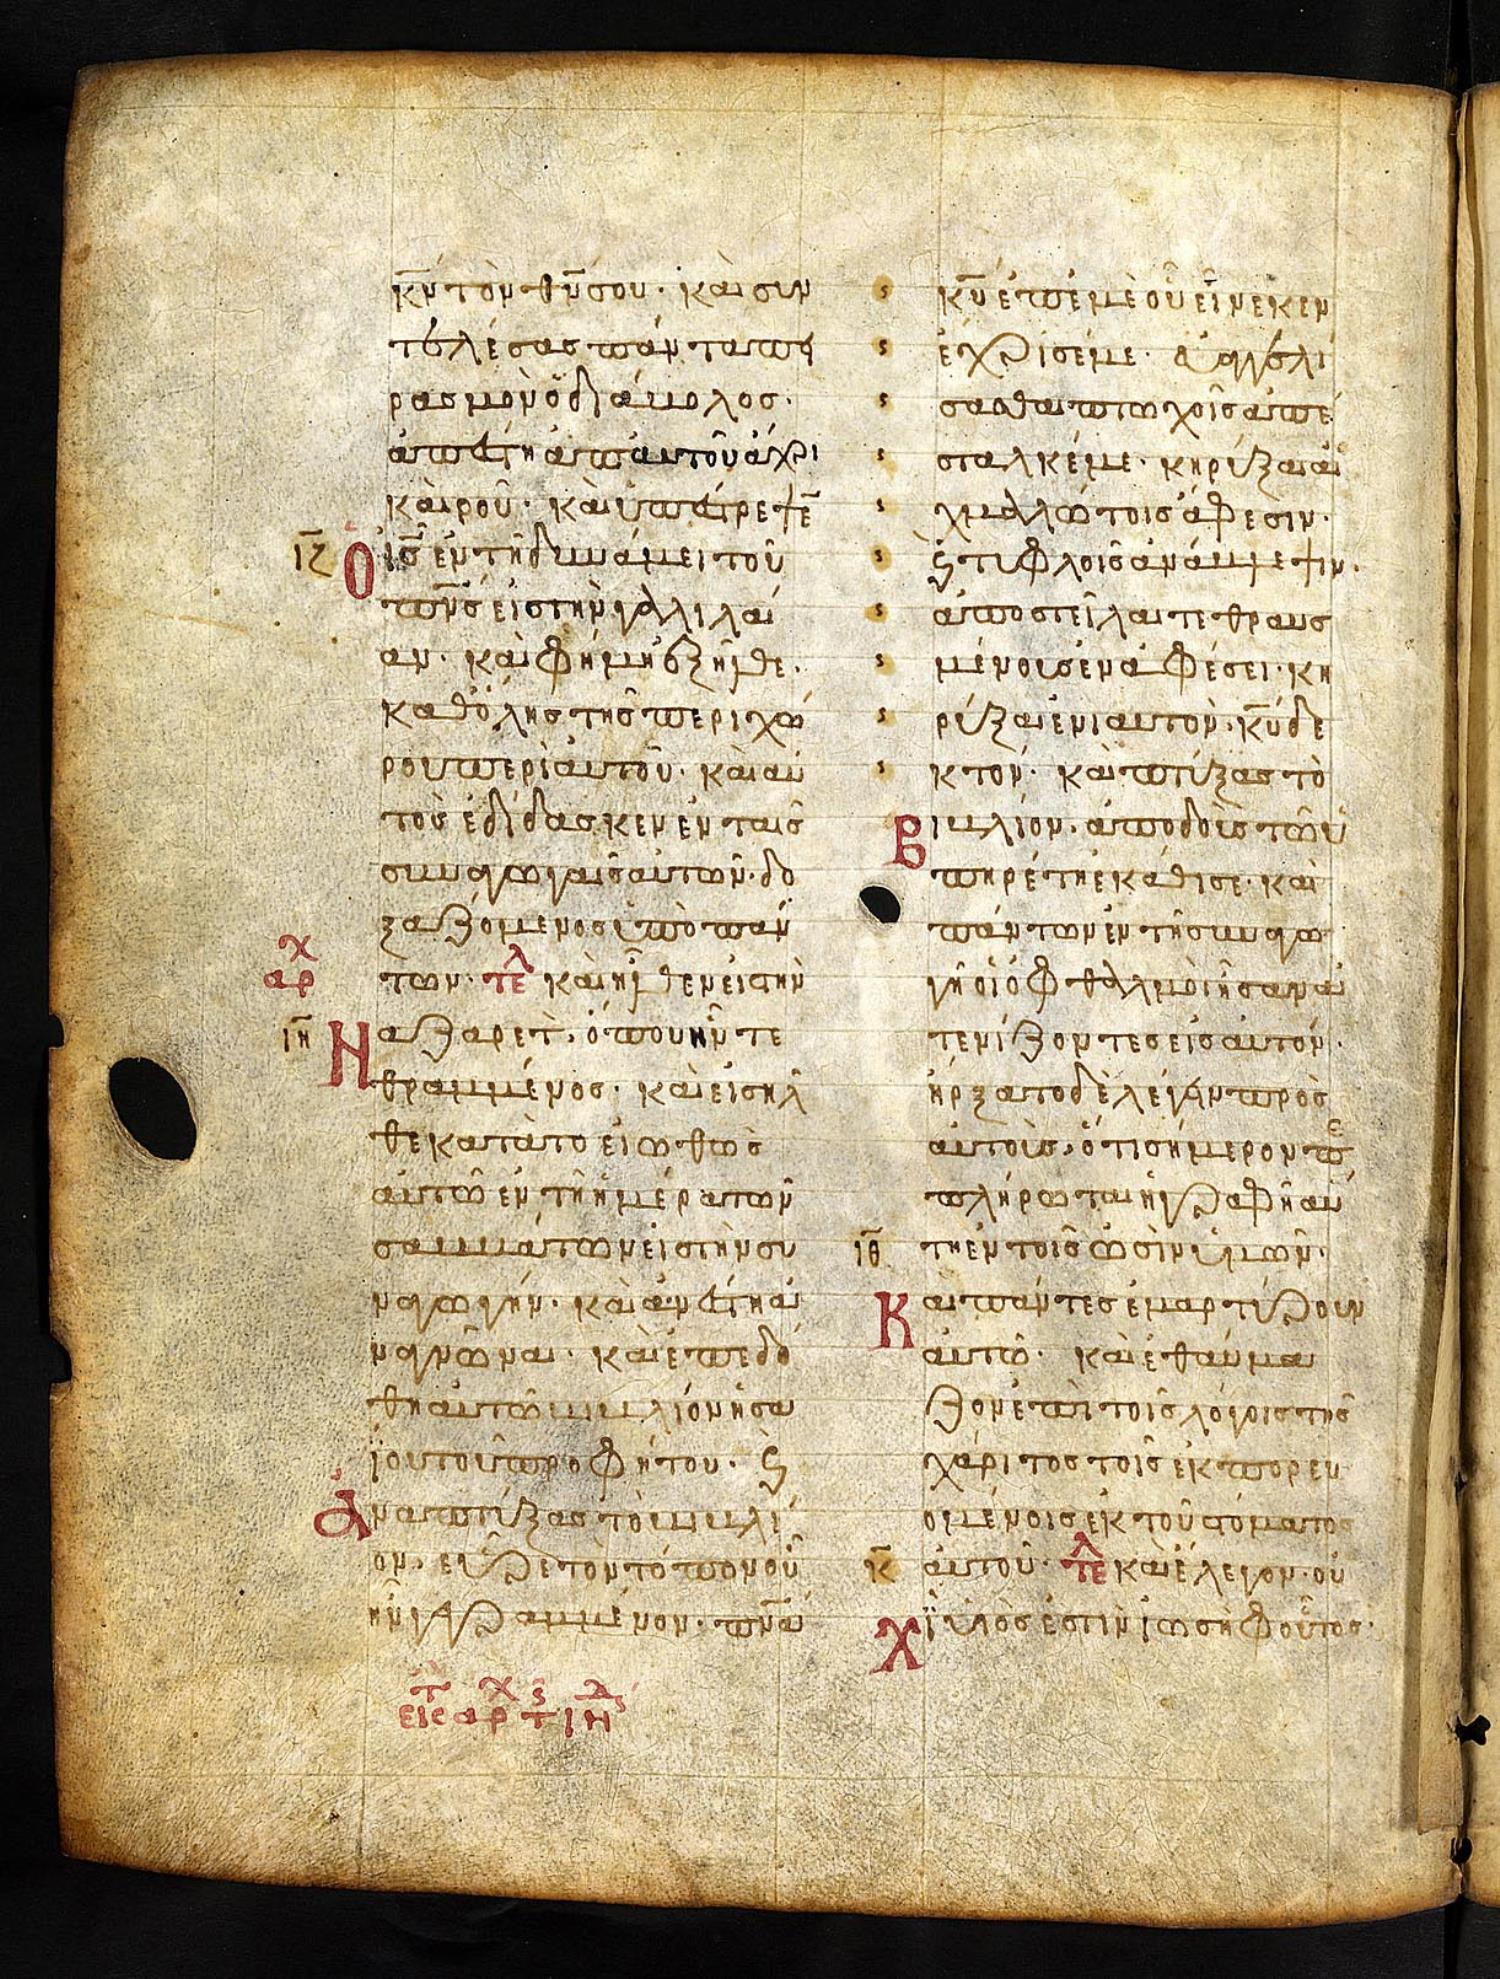 κ̅ν̅ τὸν θ̅ν̅ σου· καὶ συν
τελέσας πάντα πει
ρασμὸν ὁ διάβολος·
ἀπέστη ἀπ αὐτοῦ ἄχρι
καιροῦ· καὶ ὑπέστρεψε̅
ιζ̅ Ὁ ι̅ς̅ ἐν τῆ δυνάμει τοῦ
π̅ν̅ς̅ εἰς τὴν γαλιλαί
αν· καὶ φήμη ἐξῆλθε·
καθ ὅλης τῆς περιχώ
ρου περὶ αὐτοῦ· καὶ αὐ
τὸς ἐδίδασκεν ἐν ταῖς
συναγωγαῖς αὐτῶν· δο
ξαζόμενος ὑπὸ πάν
αρχ των· τελ καὶ ἦλθεν εἰς τὴν
ιη̅ Ναζαρετ· ὅπου ἦν τε
θραμμένος· καὶ εἰσῆλ
θε κατὰ τὸ εἰωθὼς
αὐτῶ ἐν τῆ ἡμέρα τῶν
σαββάτων εἰς τὴν συ
ναγωγήν· καὶ ἀνέστη ἀ
ναγνῶναι· καὶ ἐπεδό
θη αὐτῶ βιβλίον ἠσα
ΐου τοῦ προφήτου· ϗ
ἀναπτύξας τὸ βιβλί
ον· εὗρε τὸν τόπον οὗ
ἦν γεγραμμένον· π̅ν̅α̅
εἰς αρχ τ ιν
κ̅υ̅ ἐπ ἐμὲ οὗ εἵνεκεν
ἔχρισέ με· εὐαγγελί
σασθαι πτωχοῖς ἀπέ
σταλκέ με· κηρύξαι αἰ
χμαλώτοις ἄφεσιν·
ϗ τυφλοῖς ἀνάβλεψιν·
ἀποστεῖλαι τεθραυσ
μένους ἐν ἀφέσει· κη
ρύξαι ἐνιαυτὸν κ̅υ̅ δε
κτόν· καὶ πτύξας τὸ
Βιβλίον· ἀποδοὺς τῶ ὑ
πηρέτη ἐκάθισε· καὶ
πάντων ἐν τῆ συναγω
γῆ οἱ ὀφθαλμοὶ ἦσαν ἀ
τενίζοντες εἰς αὐτόν·
ἤρξατο δὲ λέγειν πρὸς
αὐτοὺς· ὅτι σήμερον πε
πλήρωται ἡ γραφὴ αὕ
ιθ̅ τη ἐν τοῖς ὠσὶν ὑμῶν·
Καὶ πάντες ἐμαρτύρουν
αὐτῶ· καὶ ἐθαύμα
ζον ἐπὶ τοῖς λόγοις τῆς
χάριτος τοῖς ἐκπορευ
ομένοις ἐκ τοῦ στόματος
κ̅ αὐτοῦ· τελ καὶ ἔλεγον· οὐ
Χῒ ὑιὸς ἐστὶν ἰωσὴφ οὗτος·